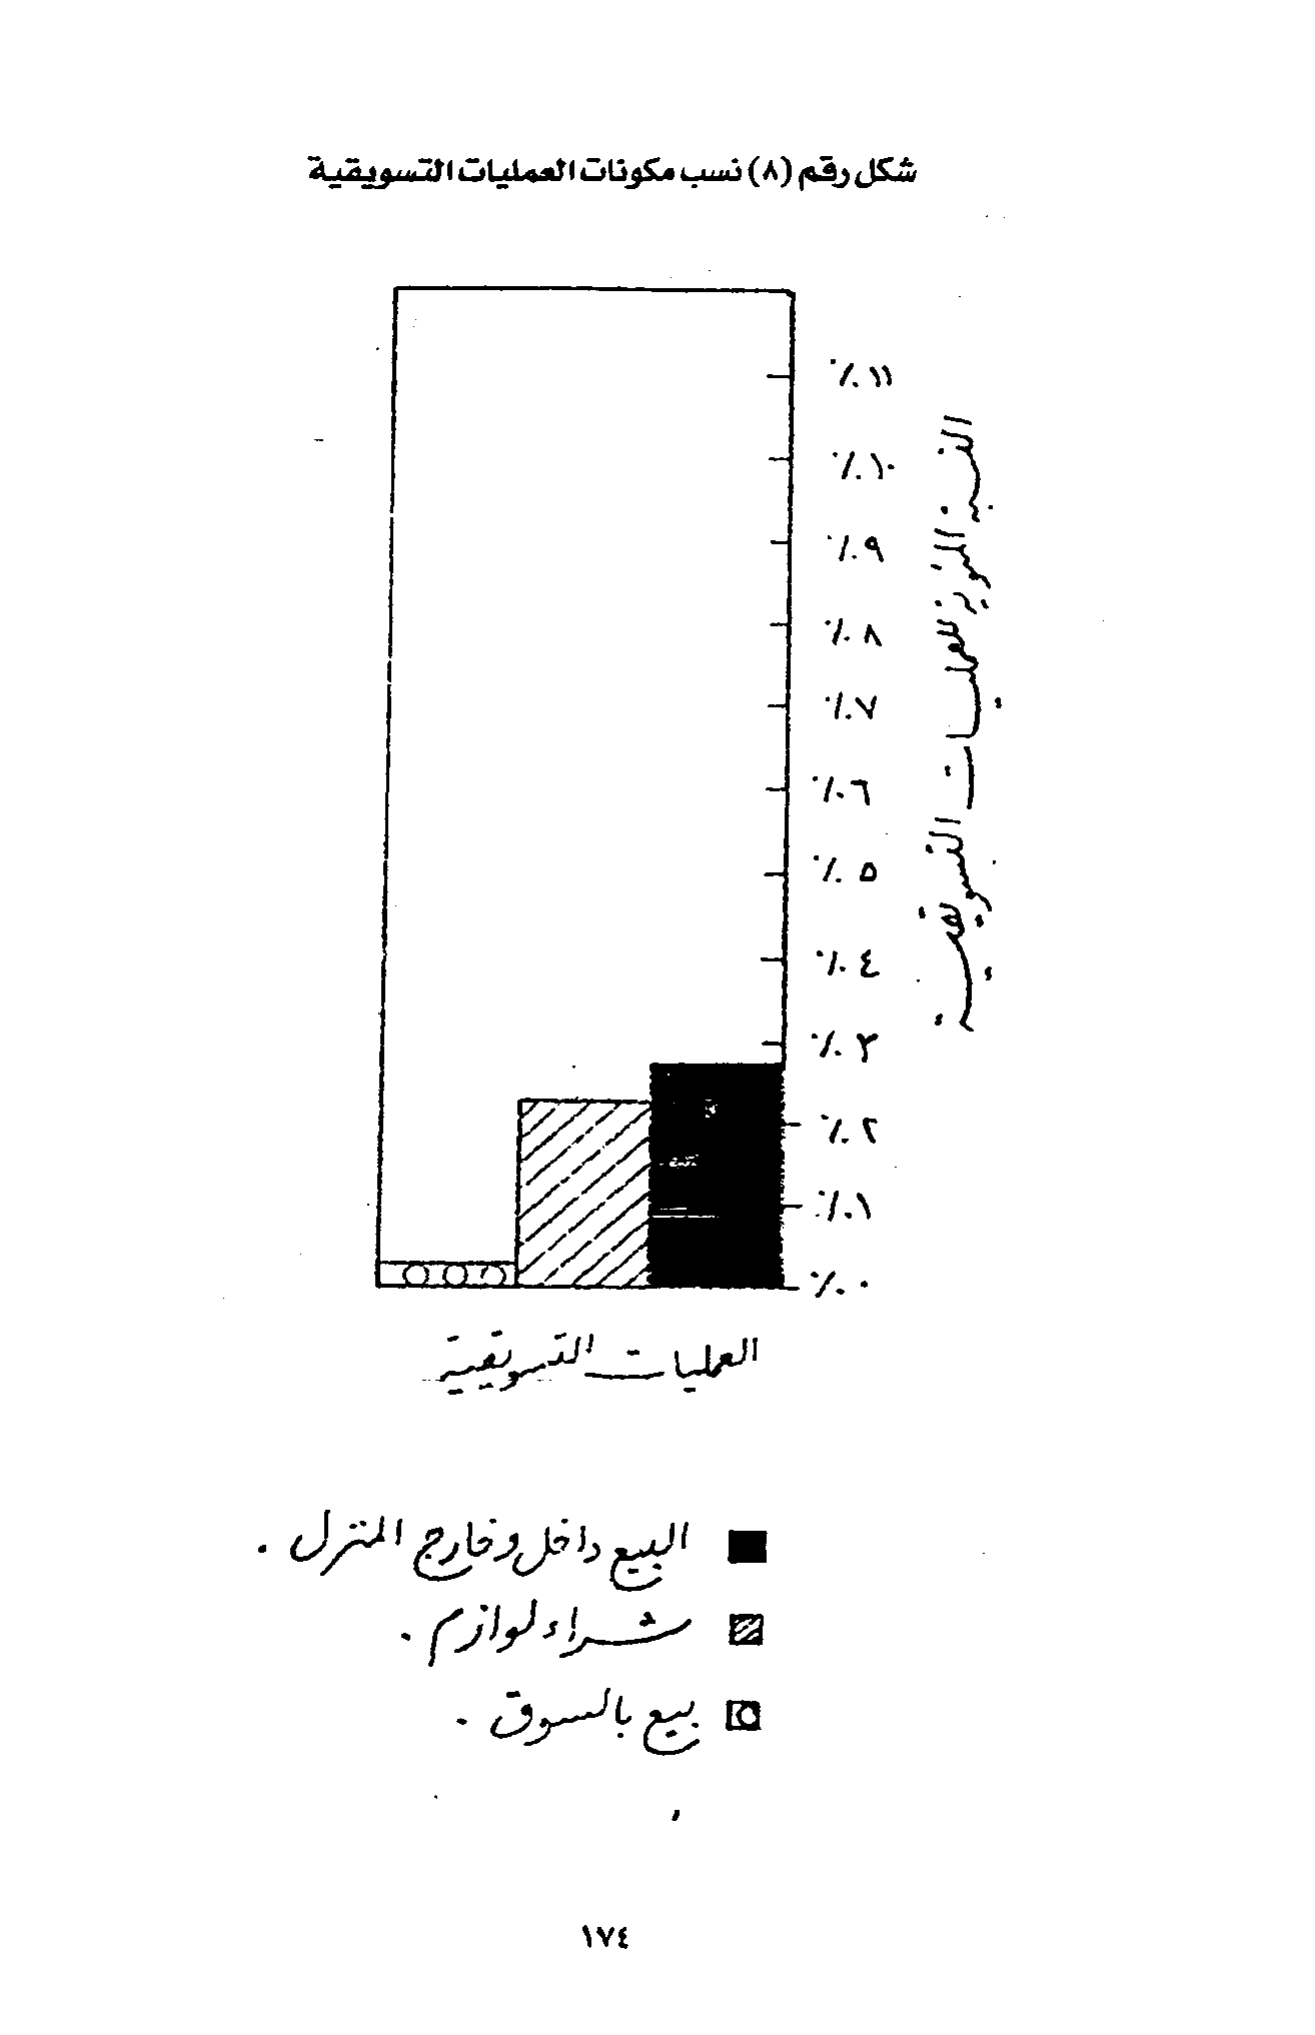 شكل رقم (٨) نسب مكونات العمليات التسويقية
٪١١
٪١٠
٪٩
٪٨
٪٧
٪٦
٪٥
٪٤
٪٣
٪٢
٪١
٪٠
النسبة المئوية للعمليات التسويقية
العمليات التسويقية
البيع داخل وخارج المنزل .
شراء لوازم .
بيع بالسوق .
١٧٤